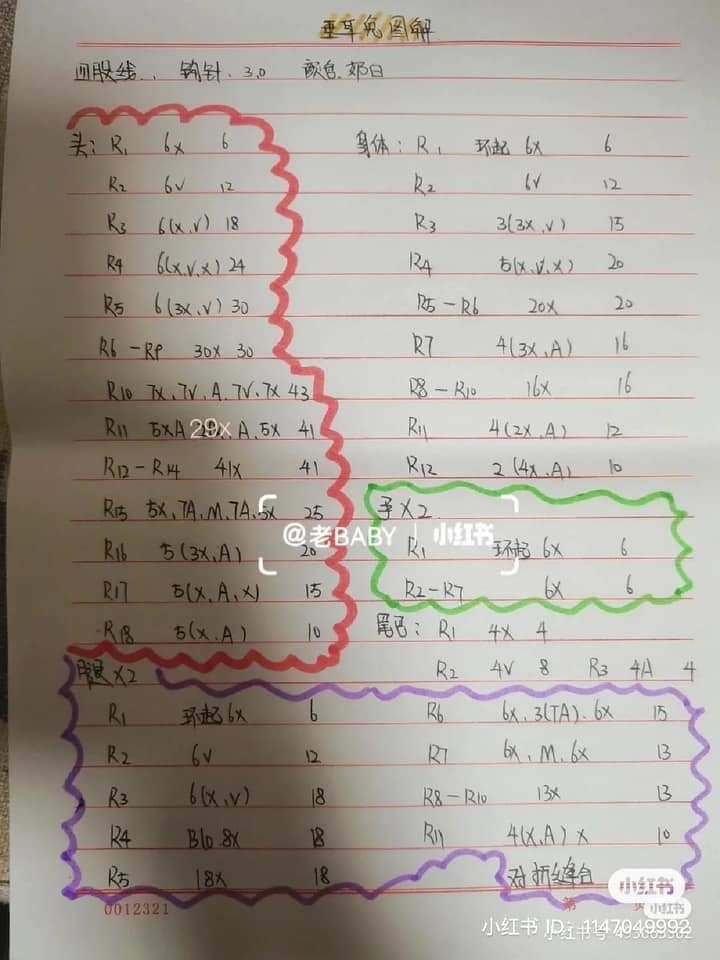 垂耳兔图解
四股线、钩针.3.0 颜色.奶白
头: R1 6x 6
R2 6V 12
R3 6(x,V) 18
R4 6(x,V,x) 24
R5 6(3x,V) 30
R6-R9 30x 30
R10 7x,7V,A,7V,7x 43
R11 5xA 29x A,5x 41
R12-R14 41x 41
R15 5x,7A,M,7A,5x 25
R16 5(3x,A) 20
R17 5(x,A,x) 15
R18 5(x,A) 10
身体: R1 环起 6x 6
R2 6V 12
R3 3(3x,V) 15
R4 5(x,V,x) 20
R5-R6 20x 20
R7 4(3x,A) 16
R8-R10 16x 16
R11 4(2x,A) 12
R12 2(4x,A) 10
手X2
R1 环起 6x 6
R2-R7 6x 6
尾巴: R1 4x 4
R2 4V 8 R3 4A 4
腿X2
R1 环起6x 6
R2 6V 12
R3 6(x,V) 18
R4 Blo 8x 18
R5 18x 18
R6 6x,3(TA),6x 15
R7 6x,M,6x 13
R8-R10 13x 13
R11 4(x,A) x 10
对折缝合
@老BABY 小红书
0012321
第 页
小红书
小红书
小红书 ID: 1147049992